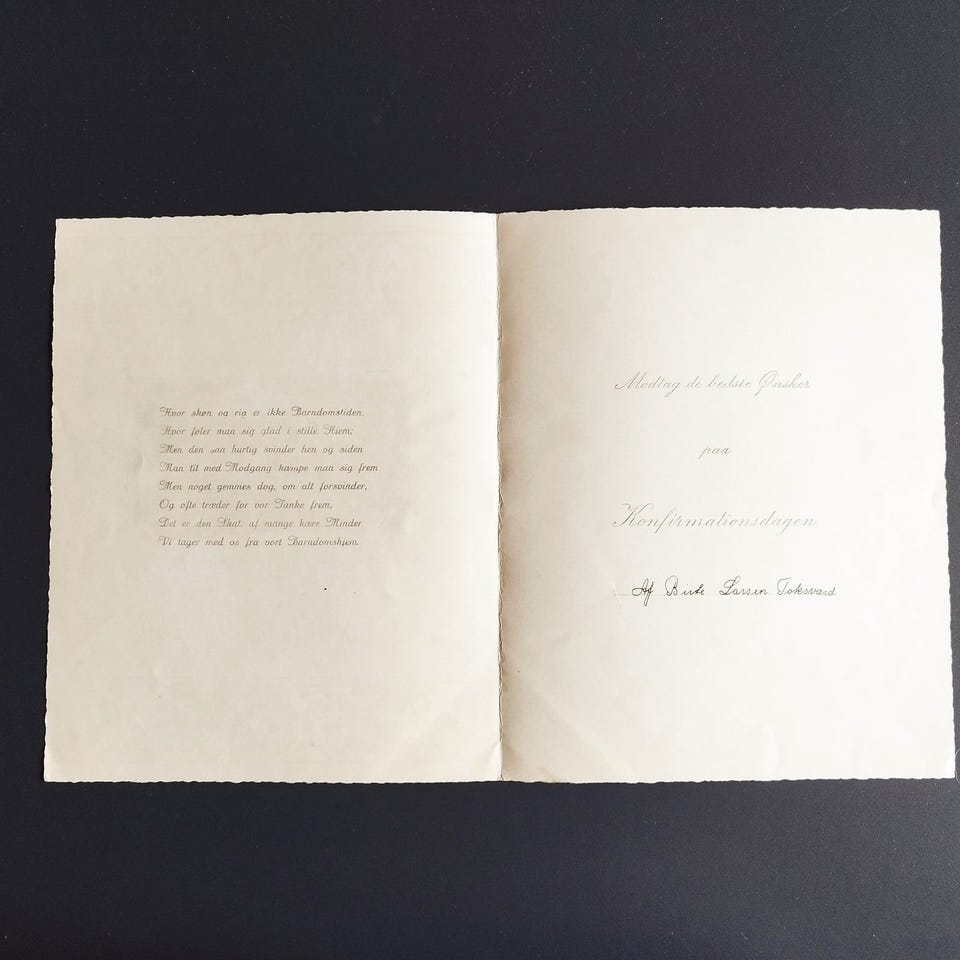 Hvor skøn og rig er ikke Barndomstiden,
Hvor føler man sig glad i stille Hjem;
Men den saa hurtig svinder hen og siden
Man tit med Modgang kæmpe maa sig frem
Men noget gemmes dog, om alt forsvinder,
Og ofte træder for vor Tanke frem,
Det er den Skat af mange kære Minder
Vi tager med os fra vort Barndomshjem.
Modtag de bedste Ønsker
paa
Konfirmationsdagen
Af Birte Larsen Toksvard